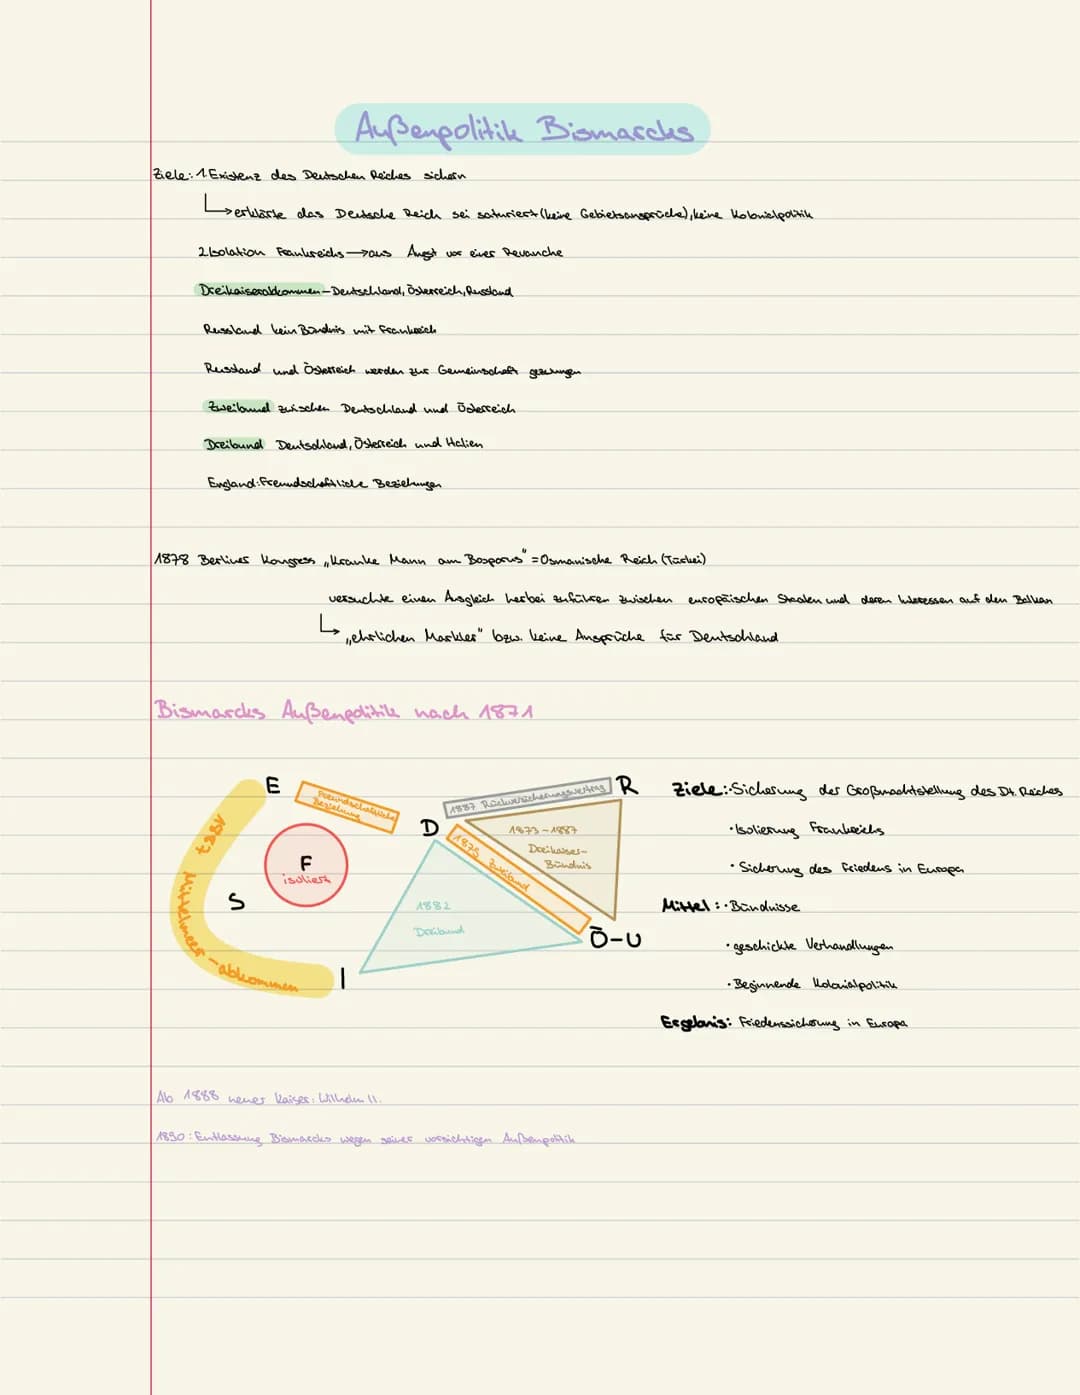 Außenpolitik Bismarcks
Ziele: 1 Existenz des Deutschen Reiches sichern
erklärte das Deutsche Reich sei saturiert (keine Gebietsansprüche), keine Kolonialpolitik
2 Isolation Frankreichs → aus Angst vor einer Revanche
Dreikaiserabkommen - Deutschland, Österreich, Russland
Russland kein Bündnis mit Frankreich
Russland und Österreich werden zur Gemeinschaft gezwungen
Zweibund zwischen Deutschland und Österreich
Dreibund Deutschland, Österreich und Italien
England: Freundschaftliche Beziehungen
1878 Berliner Kongress „Kranke Mann am Bosporus" = Osmanische Reich (Türkei)
versuchte einen Ausgleich herbei zuführen zwischen europäischen Staaten und deren Interessen auf den Balkan
„ehrlichen Markler" bzw. keine Ansprüche für Deutschland
Bismarcks Außenpolitik nach 1871
E
Freundschaftliche
Beziehung
1887 Rückversicherungsvertrag
R
D
1873-1887
Dreikaiser-
Bündnis
1879 Zweibund
F
isoliert
S
1882
Dreibund
Ö-U
I
Mittelmeer-abkommen 1887
Ziele: · Sicherung der Großmachtstellung des Dt. Reiches
· Isolierung Frankreichs
· Sicherung des Friedens in Europa
Mittel: · Bündnisse
· geschickte Verhandlungen
· Beginnende Kolonialpolitik
Ergebnis: Friedenssicherung in Europa
Ab 1888 neuer Kaiser: Wilhelm II.
1890: Entlassung Bismarcks wegen seiner vorsichtigen Außenpolitik